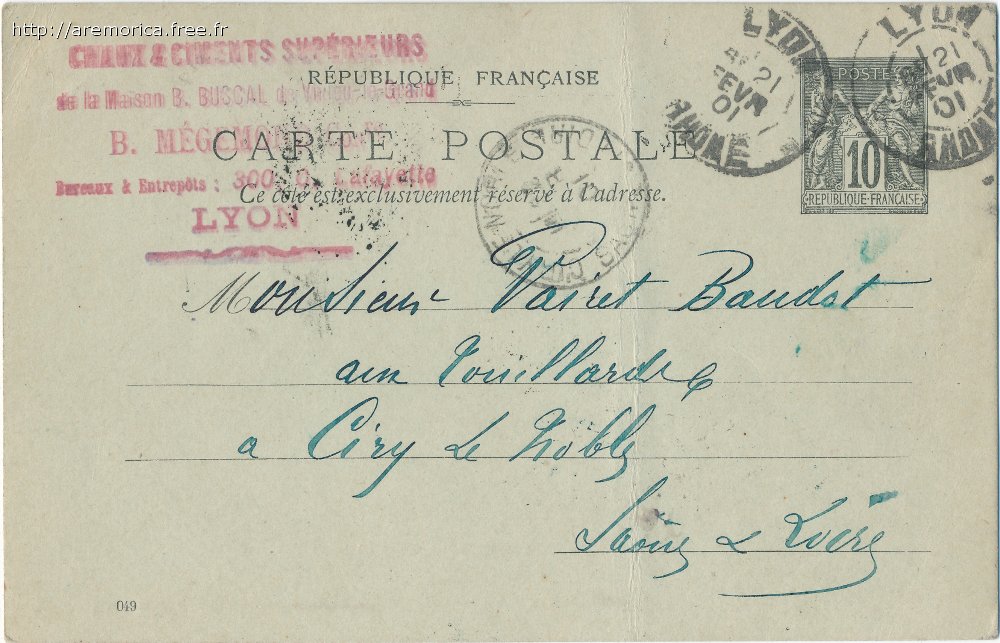 http://aremorica.free.fr
CHAUX & CIMENTS SUPÉRIEURS
de la Maison B. BUSCAL de
B. MÉGEMOND
Bureaux & Entrepôts : 300, C. Lafayette
LYON
RÉPUBLIQUE FRANÇAISE
CARTE POSTALE
Ce côté est exclusivement réservé à l'adresse.
LYON
21
FEVR
01
RHONE
LYON
21
FEVR
01
RHONE
POSTES
10
RÉPUBLIQUE FRANÇAISE
Monsieur Vairet Baudot
aux Touillards
a Ciry le Noble
Saône & Loire
049